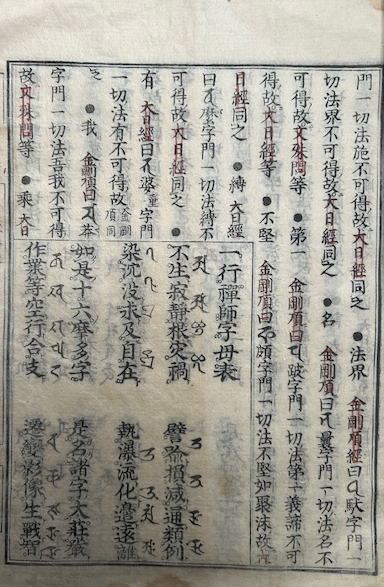 門一切法施不可得故大日經同之 ●法界 金剛頂經曰 馱字門一
切法界不可得故大日經同之 ●名 金剛頂曰 曩字門一切法名不
可得故文殊問等 ●第一 金剛頂曰 跛字門一切法第一義諦不可
得故大日經等 ●不堅 金剛頂曰 頗字門一切法不堅如聚沫故
日經同之 ●縛 大日經
曰 麼字門一切法縛不
可得故大日經同之 ●
有 大日經曰 婆重字門
一切法有不可得故 金剛頂同
之 ●我 金剛頂曰 莽
字門一切法吾我不可得
故文殊問等 ●乘 大日
一行禪師字母表
不生寂靜根灾禍 譬喻損減通類例
染沉没求及自在 執瀑流化遷遠離
如是十六摩多字 是名諸字大莊嚴
作業等空行合支 遷變影像生戰